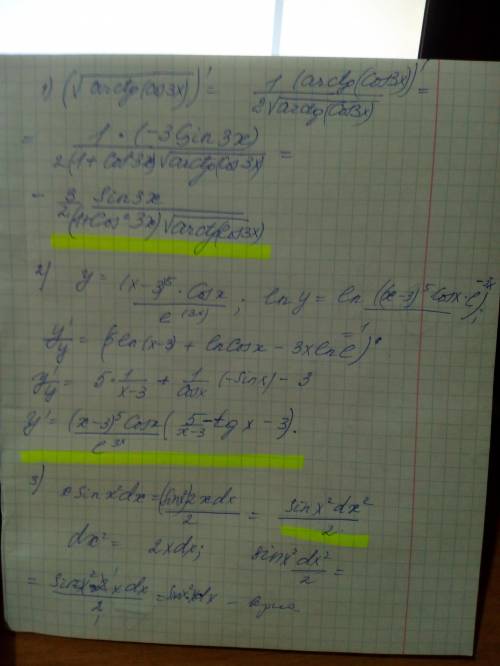 1) (√arctg(cos3x))' = 1 (arctg(cos3x))' / 2√arctg(cos3x) =
= 1·(-3sin3x) / 2(1+cos²3x)√arctg(cos3x) =
- 3/2 sin3x / (1+cos²3x)√arctg(cos3x)
2) y = (x-3)⁵·cosx / e^(3x) ; ln y = ln((x-3)⁵cosx·e^-3x);
y'/y = (5ln(x-3) + lncosx - 3xlne)'
y'/y = 5·1/(x-3) + 1/cosx (-sinx) - 3
y' = (x-3)⁵cosx / e^3x (5/(x-3) - tgx - 3).
3) xsinx²dx = (sinx²)2xdx / 2 = sinx²dx² / 2
dx² = 2xdx; sinx²dx² / 2 =